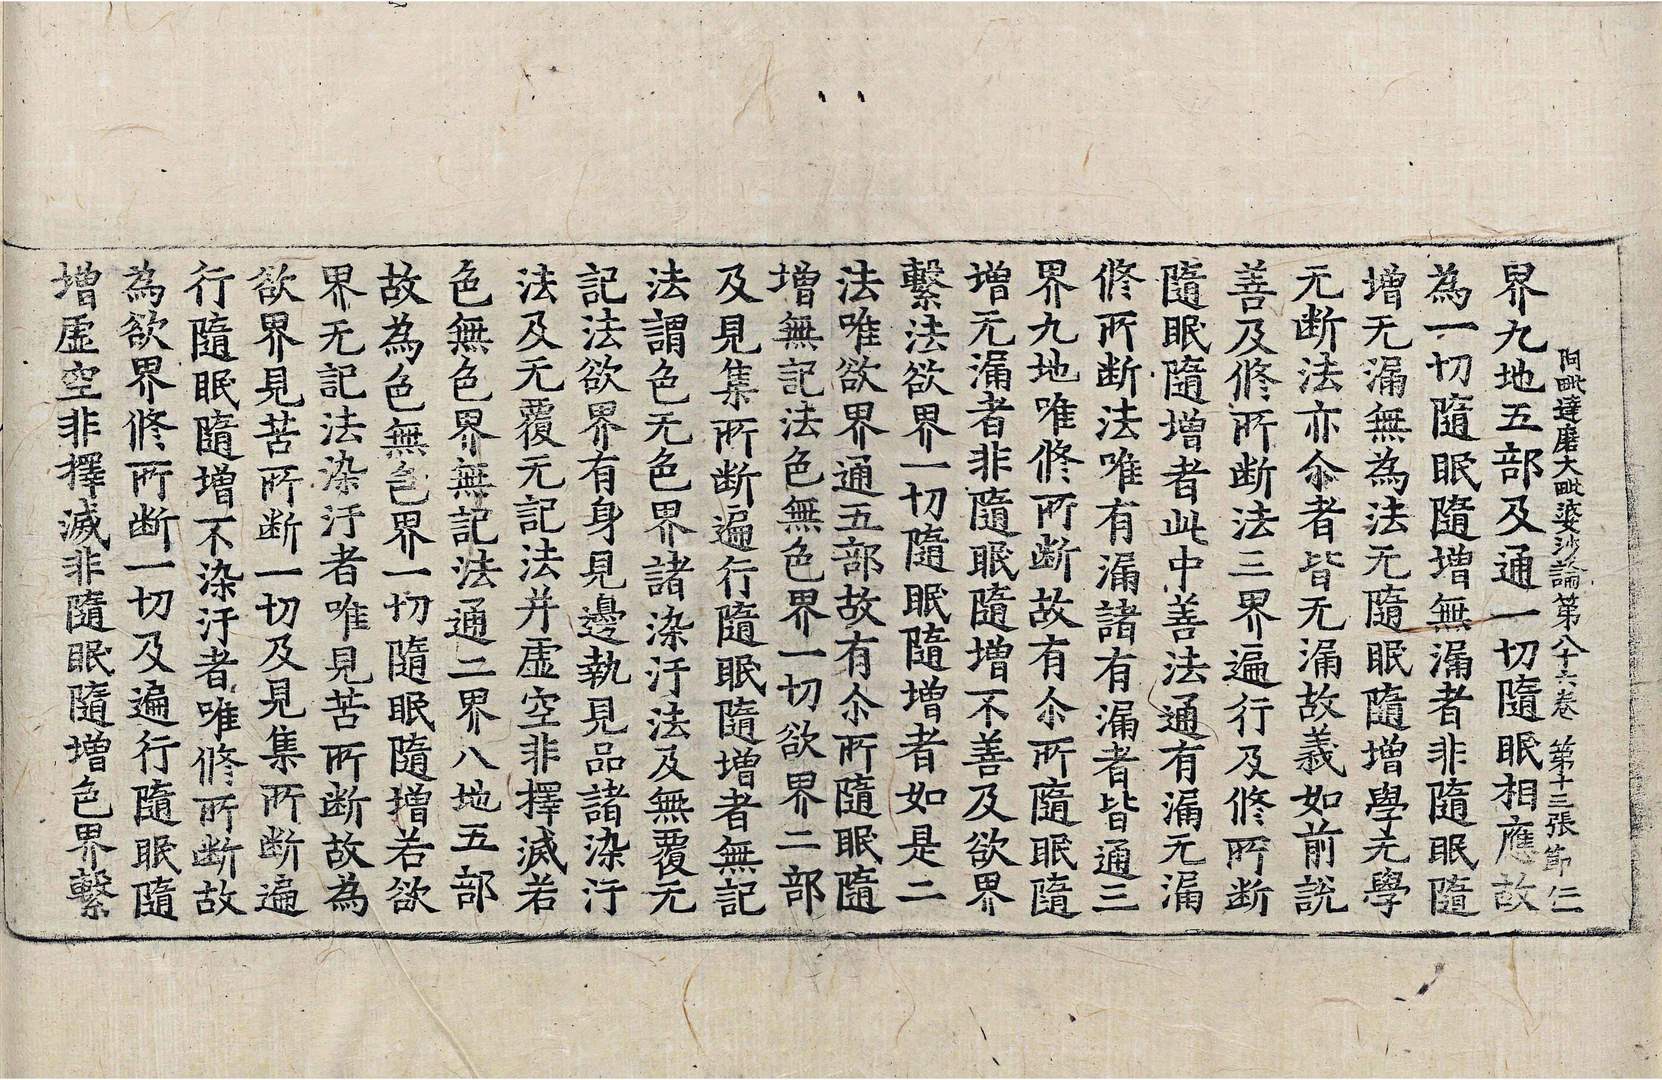 阿毗達磨大毗婆沙論第八十六卷 第十三張 節 仁
界九地五部及通一切隨眠相應故
為一切隨眠隨增無漏者非隨眠隨
增无漏無為法无隨眠隨增學无學
无断法亦尒者皆无漏故義如前說
善及修所断法三界遍行及修所断
隨眠隨增者此中善法通有漏无漏
修所断法唯有漏諸有漏者皆通三
界九地唯修所断故有尒所隨眠隨
增无漏者非隨眠隨增不善及欲界
繫法欲界一切隨眠隨增者如是二
法唯欲界通五部故有尒所隨眠隨
增無記法色無色界一切欲界二部
及見集所断遍行隨眠隨增者無記
法謂色无色界諸染汙法及無覆无
記法欲界有身見邊執見品諸染汙
法及无覆无記法并虛空非擇滅若
色無色界無記法通二界八地五部
故為色無色界一切隨眠隨增若欲
界无記法染汙者唯見苦所断故為
欲界見苦所断一切及見集所断遍
行隨眠隨增不染汙者唯修所断故
為欲界修所断一切及遍行隨眠隨
增虛空非擇滅非隨眠隨增色界繫